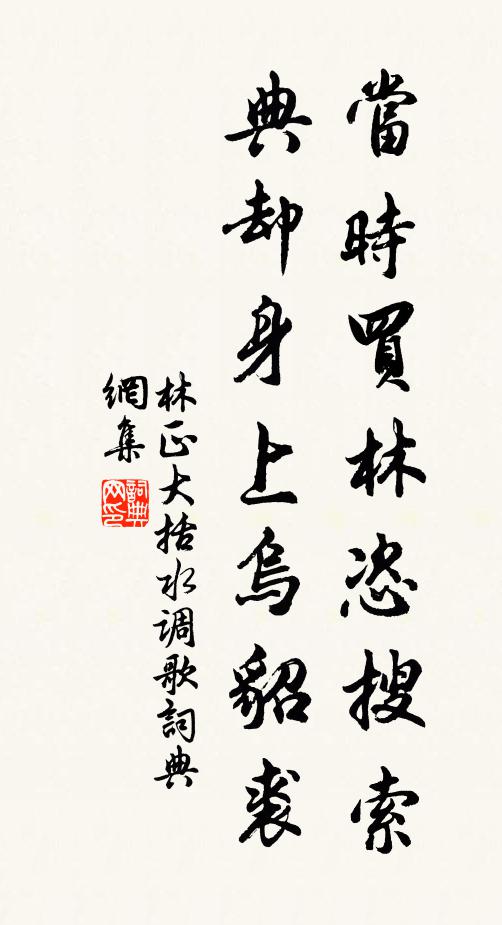 當時買林恣搜索
典却身上烏貂裘
林正大括水调歌詞典
網集
詞典網印